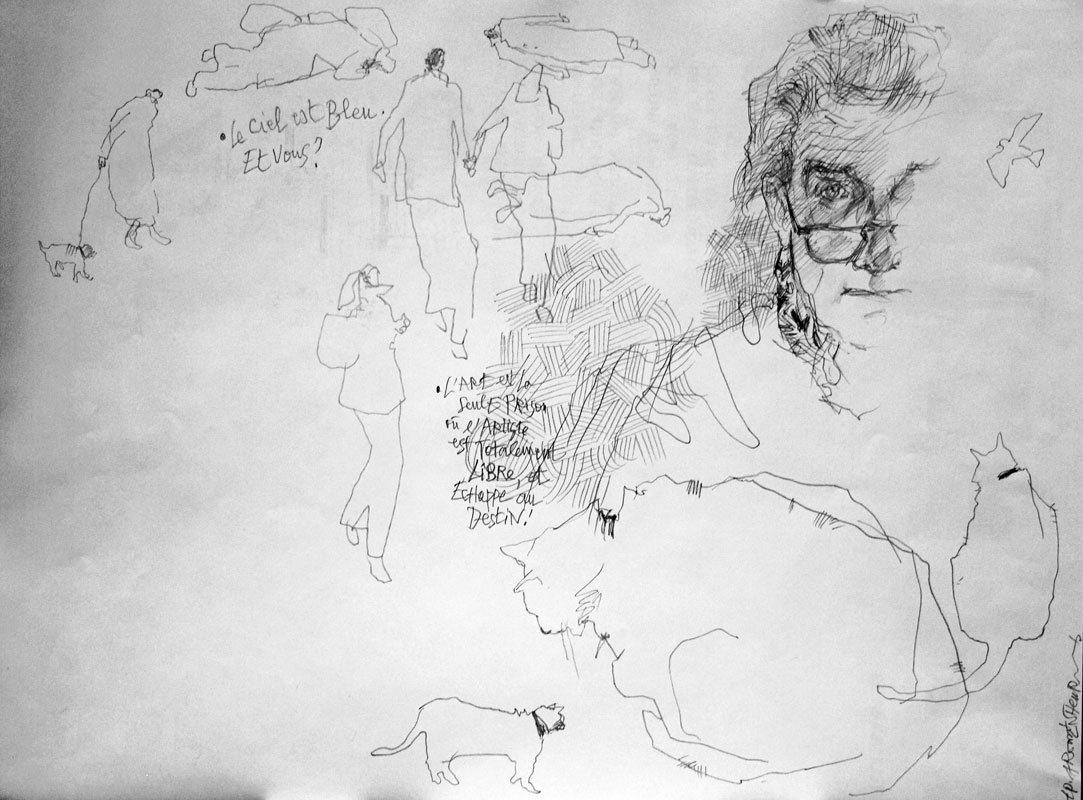 • Le Ciel est Bleu.
Et Vous ?
• L'ART est la
Seule PRison
où l'Artiste
est Totalement
LiBRe, et
Echappe au
DestiN !